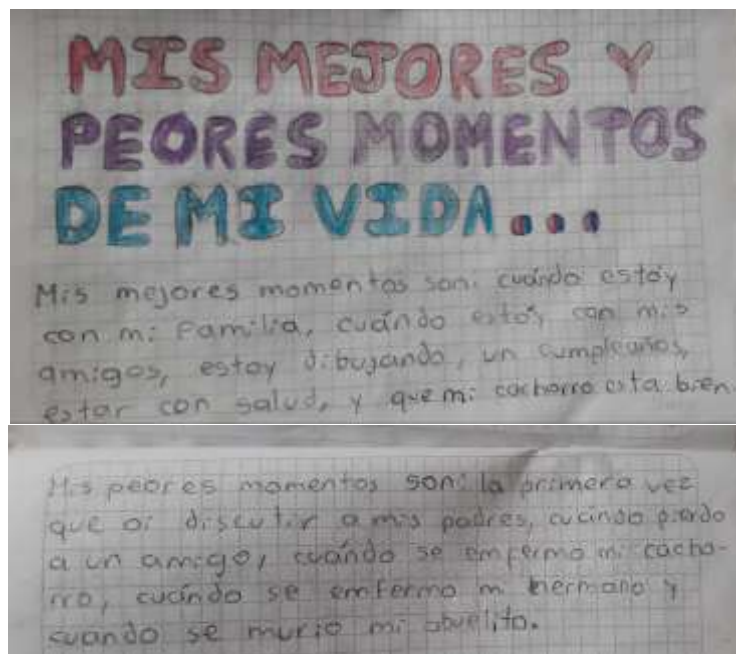 MIS MEJORES Y
PEORES MOMENTOS
DE MI VIDA...
Mis mejores momentos son: cuándo estóy
con mi familia, cuándo estóy con mis
amigos, estoy dibujando, un cumpleaños,
estar con salud, y que mi cachorro esta bien.
Mis peores momentos son: la primera vez
que oi discutir a mis padres, cuándo pierdo
a un amigo, cuándo se enfermo mi cacho-
rro, cuándo se enfermo mi hermano y
cuando se murio mi abuelito.